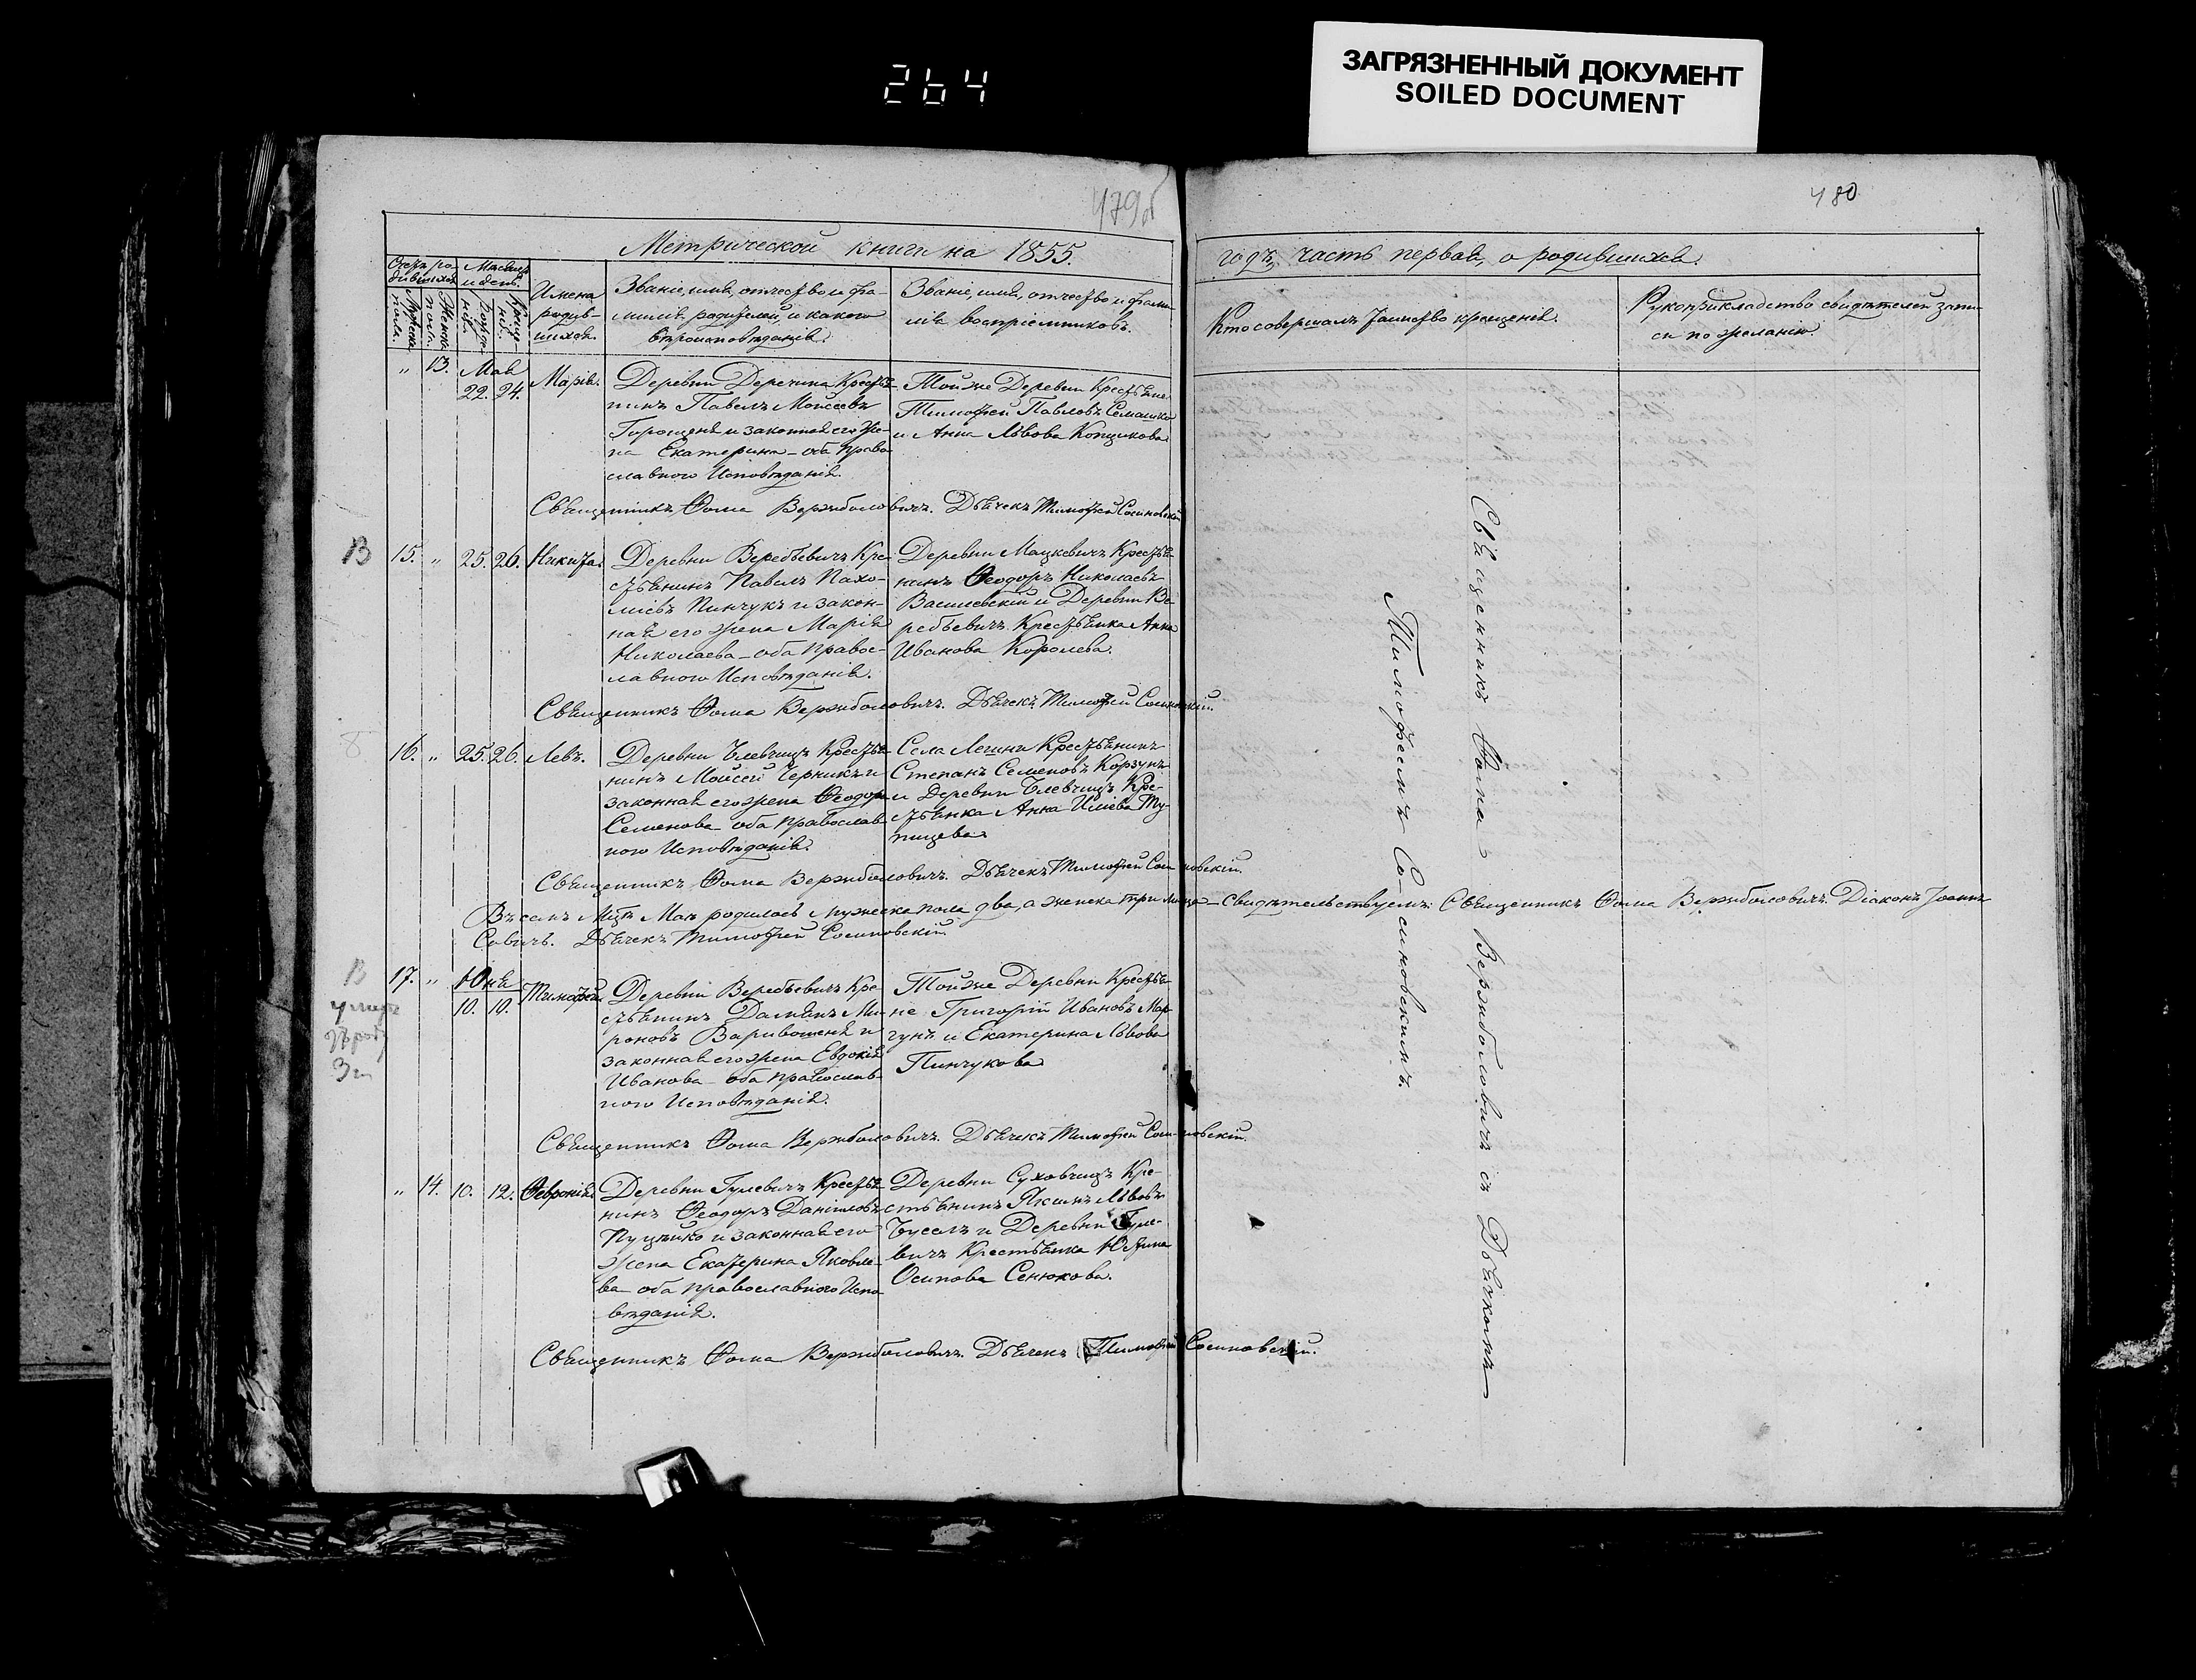 264
ЗАГРЯЗНЕННЫЙ ДОКУМЕНТ
SOILED DOCUMENT
479об
480
Метрической книги на 1855.
годъ, часть первая, о родившихся.
Счетъ родившихся
Мужеска пола.
Женска пола.
Мѣсяцъ и день.
Рожденія.
Крещенія.
Имена
родив-
шихся.
Званіе, имя, отчество и фа-
милія родителей, и какого
вѣроисповѣданія.
Званіе, имя, отчество и фами-
лія воспріемниковъ.
Кто совершалъ таинство крещенія.
Рукоприкладство свидѣтелей запи-
си по желанію.
„ 13. Мая 22. 24. Марія.
Деревни Деречина Крестья-
нинъ Павелъ Моисеевъ
Горощеня и законная его же-
на Екатерина – оба Право-
славного Исповѣданія.
Тойже Деревни Крестьяне
Тимофей Павловъ Семашко
и Анна Львова Копцикова
Священникъ Ѳома Вержболовичъ. Дьячекъ Тимофей Сосиновскій
В
15. „ 25. 26. Никита.
Деревни Веребьевичъ Кре-
стьянинъ Павелъ Пахо-
міевъ Пинчукъ и закон-
ная его жена Марія
Николаева – оба Правос-
лавного Исповѣданія.
Деревни Мацкевичъ Крестья-
нинъ Ѳеодоръ Николаевъ
Василевскій и Деревни Ве-
ребьевичъ Крестьянка Анна
Иванова Королева.
Священникъ Ѳома Вержболовичъ. Дьячекъ Тимофей Сосиновскій.
16. „ 25. 26. Левъ.
Деревни Блевчицъ Крестья-
нинъ Моисей Черникъ и
законная его жена Ѳеодора
Семенова оба Православ-
ного Исповѣданія.
Села Легини Крестьянинъ
Степанъ Семеновъ Корзунъ
и Деревни Блевчицъ Кре-
стьянка Анна Иліева Ту-
пицева
Священникъ Ѳома Вержболовичъ. Дьячекъ Тимофей Сосиновскій.
Въ семъ Мцѣ Маѣ родилось мужеска пола два, а женска три лица – Свидѣтельствуемъ: Священникъ Ѳома Вержболовичъ. Діаконъ Іоаннъ
Савичъ. Дьячекъ Тимофей Сосиновскій.
В
17. „ Юня 10. 10. Тимофей.
Деревни Веребьевичъ Кре-
стьянинъ Дамьянъ Ми-
роновъ Варивошеня и
законная его жена Евдокія
Иванова – оба Православ-
ного Исповѣданія.
Тойже Деревни Крестья-
не Григорій Ивановъ Мар-
гунъ и Екатерина Львова
Пинчукова
Священникъ Ѳома Вержболовичъ. Дьячекъ Тимофей Сосиновскій.
„ 14. 10. 12. Ѳевронія.
Деревни Гулевичъ Крестья-
нинъ Ѳеодоръ Даніиловъ
Пуцейко и законная его
жена Екатерина Яковле-
ва – оба православного Испо-
вѣданія.
Деревни Суховчицъ Кре-
стьянинъ Якимъ Львовъ
Буселъ и Деревни Гуле-
вичъ Крестьянка Юстина
Осипова Сенюкова.
Священникъ Ѳома Вержболовичъ. Дьячекъ Тимофей Сосиновскій.
Священникъ Ѳома Вержболовичъ съ Дьячкомъ
Тимофеемъ Сосиновскимъ.